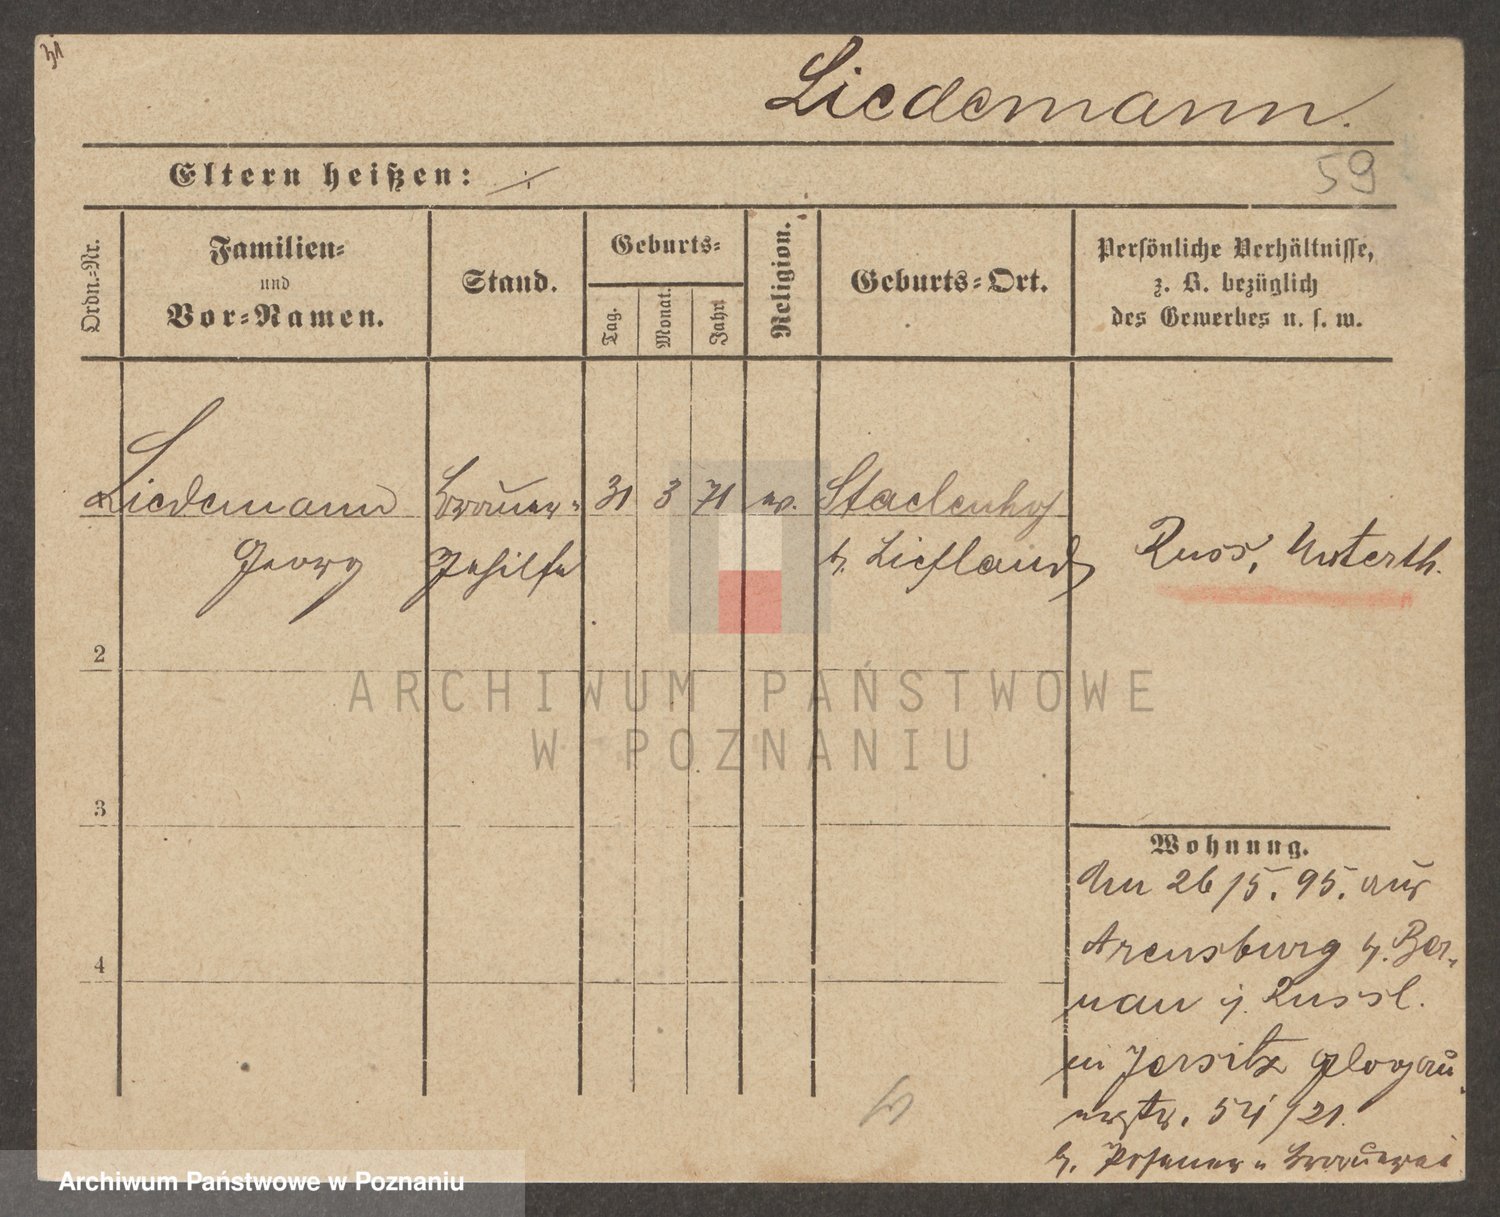 Liedemann.
Eltern heißen:
59
Ordn.-Nr.
Familien-
und
Vor-Namen.
Stand.
Geburts-
Tag.
Monat.
Jahr.
Religion.
Geburts-Ort.
Persönliche Verhältnisse,
z. B. bezüglich
des Gewerbes u. s. w.
Liedemann
Georg
Brauer-
Gehilfe
31
3
71
ev.
Stackenhof
b. Liefland
Russ. Unterth.
2
3
4
Wohnung.
Am 26/5. 95. aus
Arensburg b. Per-
nau i. Russl.
in Jersitz Glogau
erstr. 54/21.
b. Posener Brauerei
ARCHIWUM PAŃSTWOWE
W POZNANIU
Archiwum Państwowe w Poznaniu